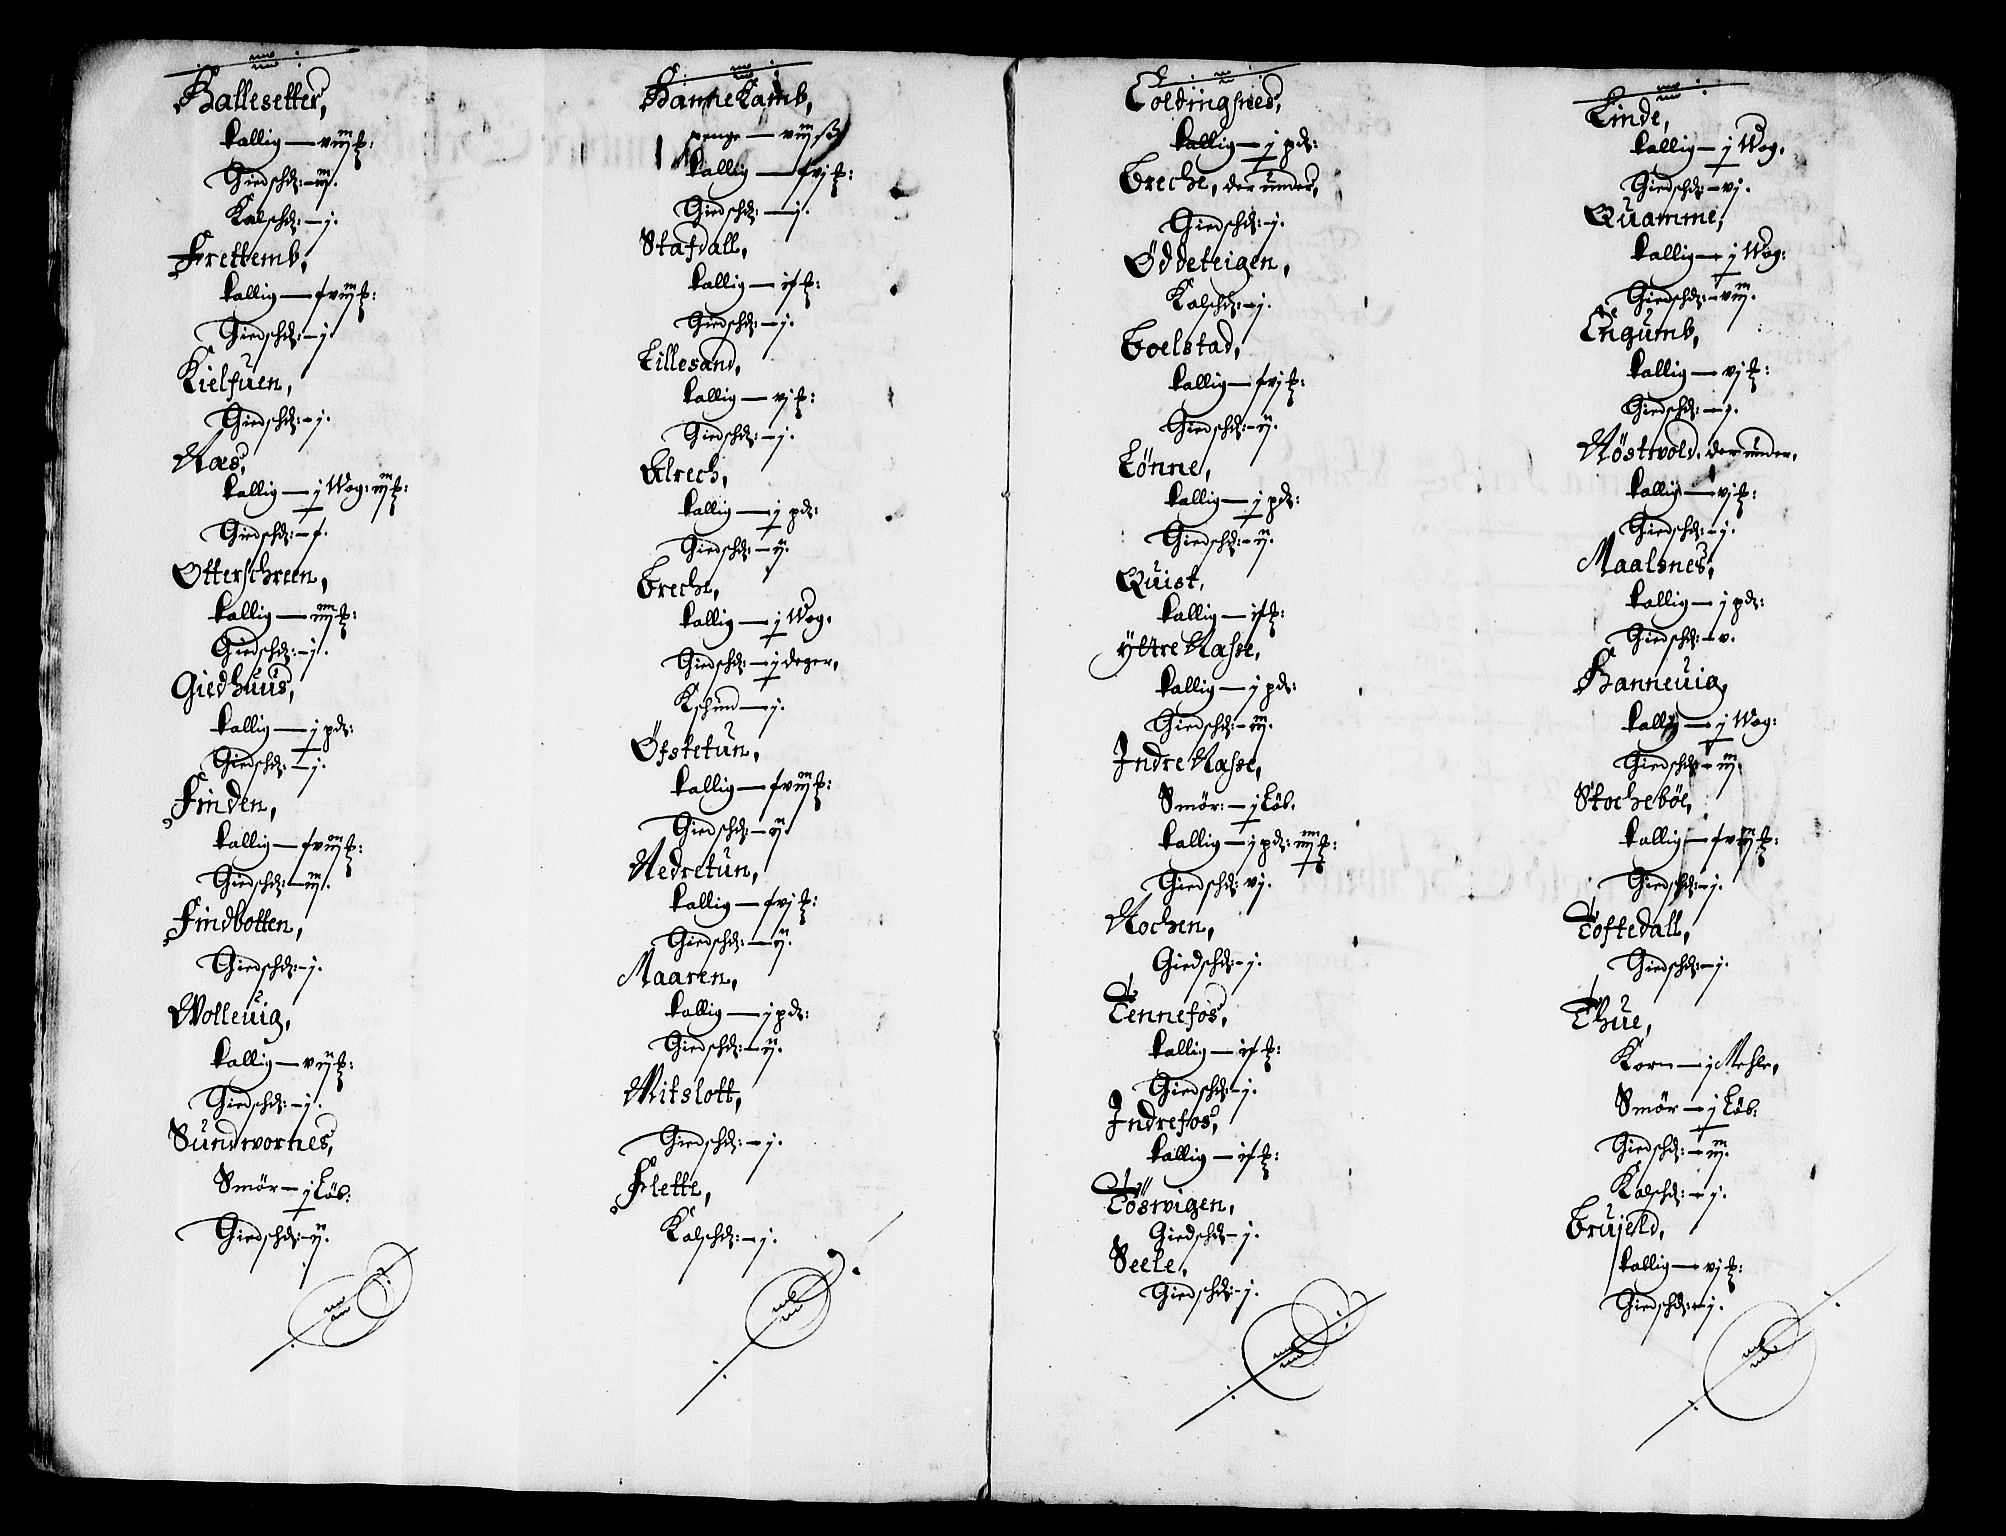 Ballesetter,
kallig — viij ℔:
Giedschd: — iij.
Kalschd: — j.
Frettemb,
kallig — xviij ℔:
Giedschd: — j.
Kielfuen,
Giedschd: — j.
Næs,
kallig — j Wog: iij ℔:
Giedschd: — x.
Otterschreen,
kallig — iiij ℔:
Giedschd: — j.
Giedhuus,
kallig — j pd:
Giedschd: — j.
Finden,
kallig — xviij ℔:
Giedschd: — iij.
Findbotten,
Giedschd: — j.
Wolleuig,
kallig — vij ℔:
Giedschd: — j.
Sundwornes,
Smör — j Löb:
Giedschd: — ij.
Hannekamb,
penge — viij ß
kallig — xvj ℔:
Giedschd: — j.
Stafdall,
kallig — ix ℔:
Giedschd: — j.
Lillesand,
kallig — vj ℔:
Giedschd: — j.
Elrech,
kallig — j pd:
Giedschd: — ij.
Breche,
kallig — j Wog.
Giedschd: — j deger,
Kschind — j.
Øfstetun,
kallig — xviij ℔:
Giedschd: — ij
Nedretun,
kallig — xvj ℔:
Giedschd: — ij.
Maaren,
kallig — j pd:
Giedschd: — ij.
Mitslott,
Giedschd: — j.
Flette,
Kalschd: — j.
Coldingsnes,
kallig — j pd:
Breche, der under,
Giedschd: — j.
Øddeteigen,
Kalschd: — j.
Boelstad,
kallig — xvj ℔:
Giedschd: — ij.
Lønne,
kallig — j pd:
Giedschd: — ij.
Quist,
kallig — ix ℔:
ÿttre Nasse,
kallig — j pd:
Giedschd: — iij.
Indre Nasse,
Smör: — j Löb.
kallig — j pd: iiij ℔:
Giedschd: vj.
Nochen,
Giedschd: — j.
Tennefos,
kallig — ix ℔:
Giedschd: — j.
Indrefos,
kallig — ix ℔:
Töswigen,
Giedschd: — j.
Seele,
Giedschd: — j.
Linde,
kallig — j Wog.
Giedschd: — vj.
Quamme,
kallig — j Wog:
Giedschd: — viij.
Engumb,
kallig — vj ℔:
Giedschd: — j.
Nöstwold, der under,
kallig — vj ℔:
Giedschd: — j.
Maalsnes,
kallig — j pd:
Giedschd: — v.
Hanneuig,
kallig — j Wog:
Giedschd: — iij.
Stocheböe,
kallig — xviij ℔:
Giedschd: — j.
Toftedall,
Giedschd: — j.
Thue,
Korn — j Mehle,
Smör — j Löb:
Giedschd: — iij.
Kalschd: — j.
Brujeld,
kallig — vj ℔:
Giedschd: — j.